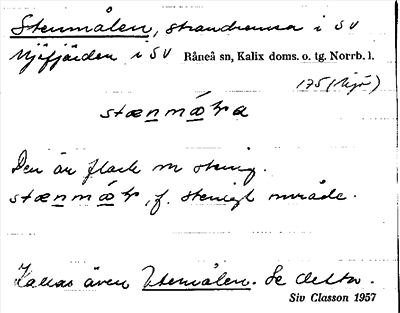 Stenmålen, strandremsa i SV
Njöfjärden i SV Råneå sn, Kalix doms. o. tg. Norrb. l.
175 (Hjo)
stænmɷ̄ɽa
Den är flack o stenig.
stænmɷ̄ɽ, f. stenigt område.
Kallas även Utemålen. Se detta.
Siv Classon 1957